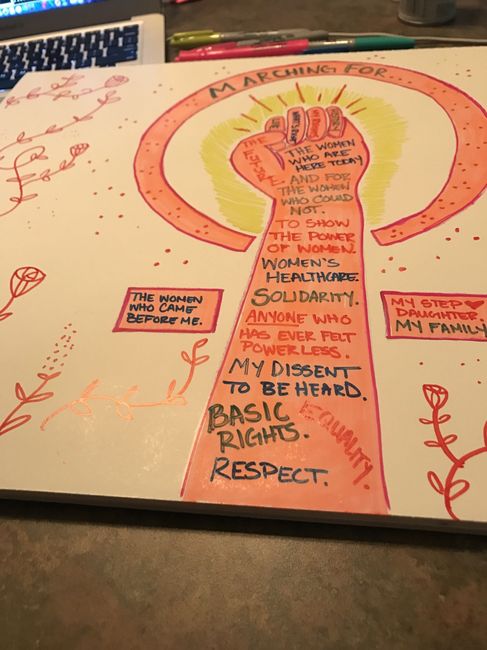 MARCHING FOR...
THE
FUTURE.
THE WOMEN
WHO ARE
HERE TODAY
AND FOR
THE WOMEN
WHO COULD
NOT.
TO SHOW
THE POWER
OF WOMEN.
WOMEN'S
HEALTHCARE.
SOLIDARITY.
ANYONE WHO
HAS EVER FELT
POWERLESS.
MY DISSENT
TO BE HEARD.
BASIC
RIGHTS.
EQUALITY.
RESPECT.
THE WOMEN
WHO CAME
BEFORE ME.
MY STEP
DAUGHTER
MY FAMILY